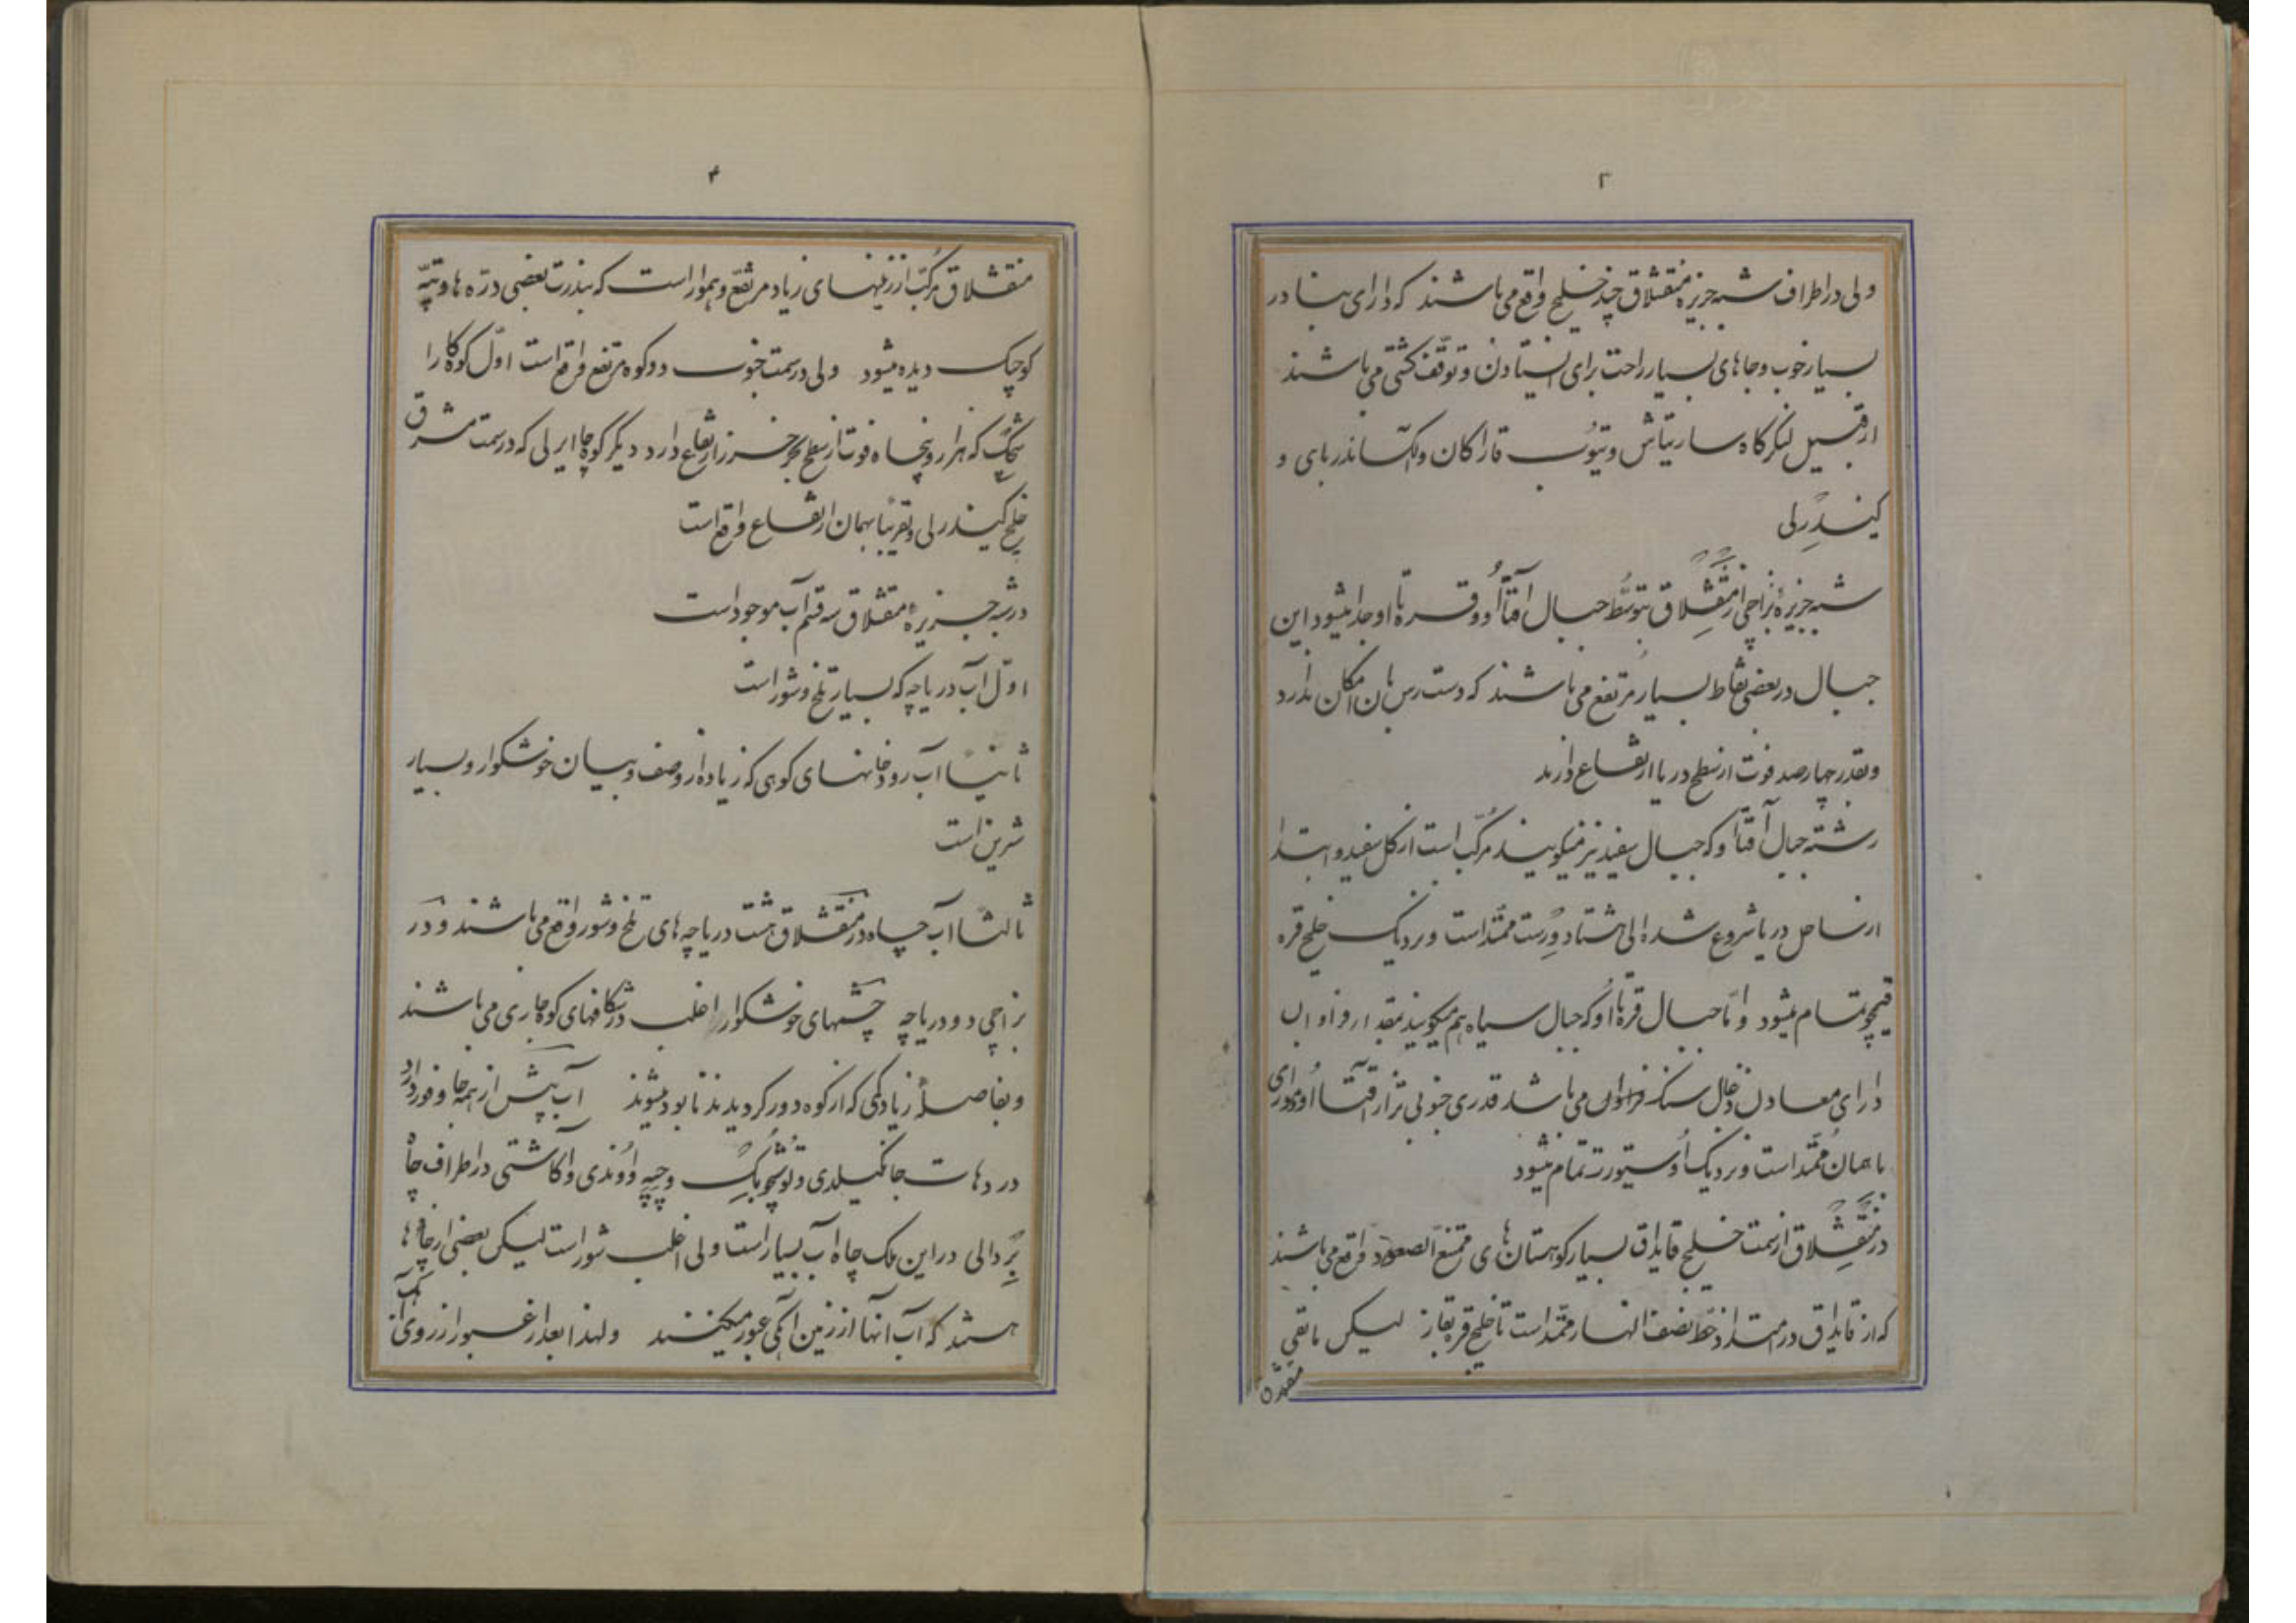 ۲
ولی در اطراف شبه جزیره منقشلاق چند خلیج واقع می باشند که دارای بنادر
بسیار خوب و جاهای بسیار راحت برای ایستادن و توقف کشتی می باشند
از قبیل لنکرکاه ساریتاش و تیوب قاراکان و الکساندربای و
کیندرلی
شبه جزیرهٔ بزاچی از منقشلاق بتوسط جبال آقتاأو و قره تاأو جدا میشود این
جبال در بعضی نقاط بسیار مرتفع می باشند که دست رس بآن امکان ندارد
و بقدر چهارصد فوت از سطح دریا ارتفاع دارند
رشته جبال آقتاأو که جبال سفید نیز میکویند مرکب است از کل سفید و ابتدا
از ساحل دریا شروع شده الی هشتاد ورست ممتد است و نزدیک خلیج قره
قیچو تمام میشود و اما جبال قره تاأو که جبال سیاه هم میکویند بمقدار
دارای معادن ذغال سنک فراوان می باشد قدری جنوبی تر از آقتاأو
با همان ممتد است و نزدیک اوستیورت تمام میشود
در منقشلاق از سمت خلیج قایداق بسیار کوهستان های ممتنع الصعود واقع می باشند
که از قایداق در امتداد خط نصف النهار ممتد است تا خلیج قره بقاز لیکن مابقی
منقشلاق
۳
منقشلاق مرکب از زمینهای زیاد مرتفع و هموار است که بندرت بعضی درّه ها و تپّه
کوچک دیده میشود ولی در سمت جنوب دو کوه مرتفع واقع است اوّل کوه کارا
که هزار و پنجاه فوت از سطح بحر خزر ارتفاع دارد دیکر کوچا ایرلی که در سمت مشرق
خلیج کیندرلی و تقریباً بهمان ارتفاع واقع است
در شبه جزیرهٔ منقشلاق سه قسم آب موجود است
اوّل آب دریاچه که بسیار تلخ و شور است
ثانیاً آب رودخانهای کوهی که زیاده از وصف و بیان خوشکوار و بسیار
شرین است
ثالثاً آب چاه در منقشلاق هشت دریاچه های تلخ و شور واقع می باشند و در
بزاچی دو دریاچه چشمهای خوشکوار اغلب در شکافهای کوه جاری می باشند
و بفاصلهٔ زیاد کمی که از کوه دور کردیدند نابود میشوند آب پیش از همه جا وفور دارد
در دهات جانکیلدی و توشچوبک و چپه و اوندی و آکاشتی در اطراف چاه
بردالی در این ملک چاه آب بسیار است ولی اغلب شور است لیکن بعضی از چاه ها
هستند که آب آنها از زمین آهکی عبور میکنند و لهذا بعد از عبور از روی آهک